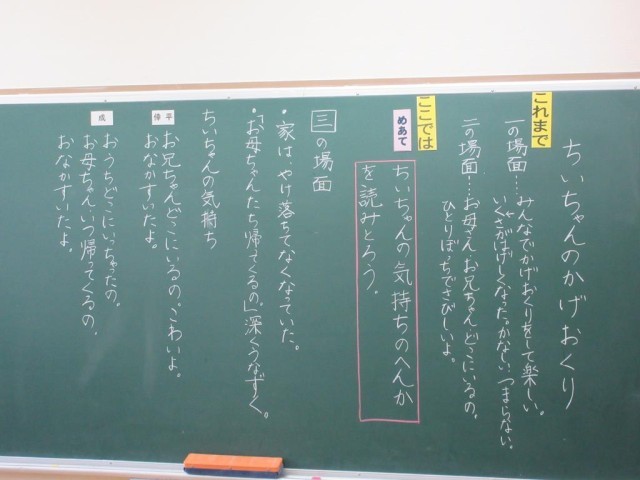 ちいちゃんのかげおくり
これまで
一の場面…みんなでかげおくりをして楽しい。
いくさがはげしくなった。かなしい、つまらない。
二の場面…お母さん、お兄ちゃん、どこにいるの。
ひとりぼっちでさびしいよ。
ここでは
めあて
ちいちゃんの気持ちのへんか
を読みとろう。
三の場面
・家は、やけ落ちてなくなっていた。
・「お母ちゃんたち帰ってくるの。」深くうなずく。
ちいちゃんの気持ち
倖平
お兄ちゃんどこにいるの。こわいよ。
おなかすいたよ。
成
おうちどこにいっちゃたの。
お母ちゃん、いつ帰ってくるの。
おなかすいたよ。